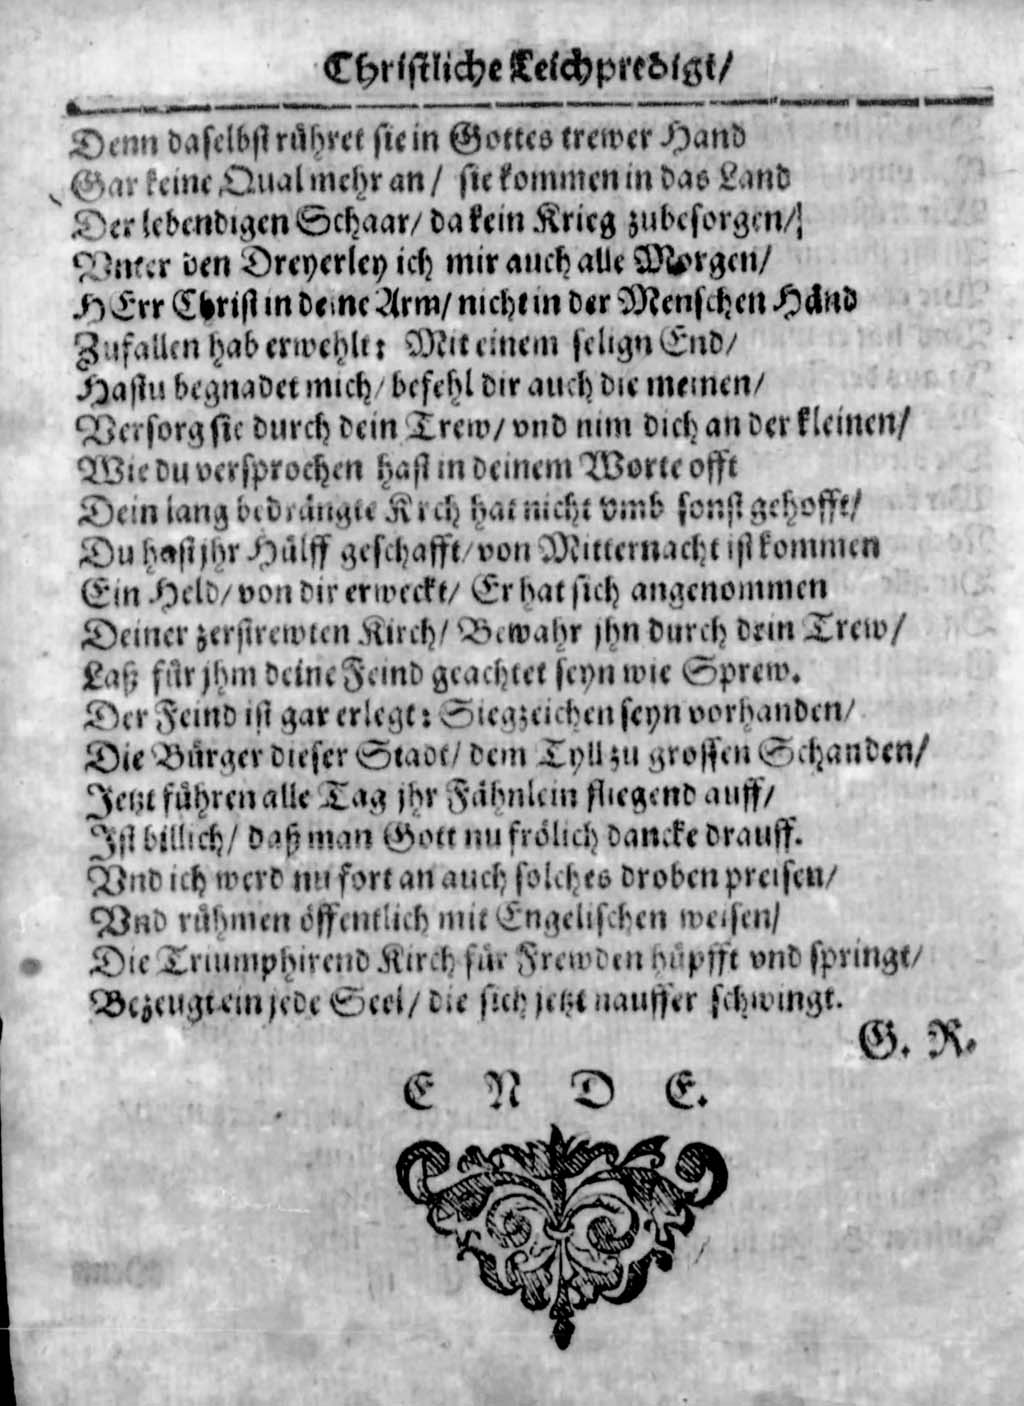 Christliche Leichpredigt/
Denn daselbst rühret sie in Gottes trewer Hand
Gar keine Qual mehr an/ sie kommen in das Land
Der lebendigen Schaar/ da kein Krieg zubesorgen/
Vnter den Dreyerley ich mir auch alle Morgen/
HErr Christ in deine Arm/ nicht in der Menschen Händ
Zufallen hab erwehlt: Mit einem selign End/
Hastu begnadet mich/ befehl dir auch die meinen/
Versorg sie durch dein Trew/ vnd nim dich an der kleinen/
Wie du versprochen hast in deinem Worte offt
Dein lang bedrängte Krch hat nicht vmb sonst gehofft/
Du hast jhr Hülff geschafft/ von Mitternacht ist kommen
Ein Held/ von dir erweckt/ Er hat sich angenommen
Deiner zerstrewten Kirch/ Bewahr jhn durch dein Trew/
Laß für jhm deine Feind geachtet seyn wie Sprew.
Der Feind ist gar erlegt: Siegzeichen seyn vorhanden/
Die Bürger dieser Stadt/ dem Tyll zu grossen Schanden/
Jetzt führen alle Tag jhr Fähnlein fliegend auff/
Ist billich/ daß man Gott nu frölich dancke drauff.
Vnd ich werd nu fort an auch solches droben preisen/
Vnd rühmen öffentlich mit Engelischen weisen/
Die Triumphirend Kirch für Frewden hüpfft vnd springt/
Bezeugt ein jede Seel/ die sich jetzt nauffer schwingt.
G. R.
E N D E.